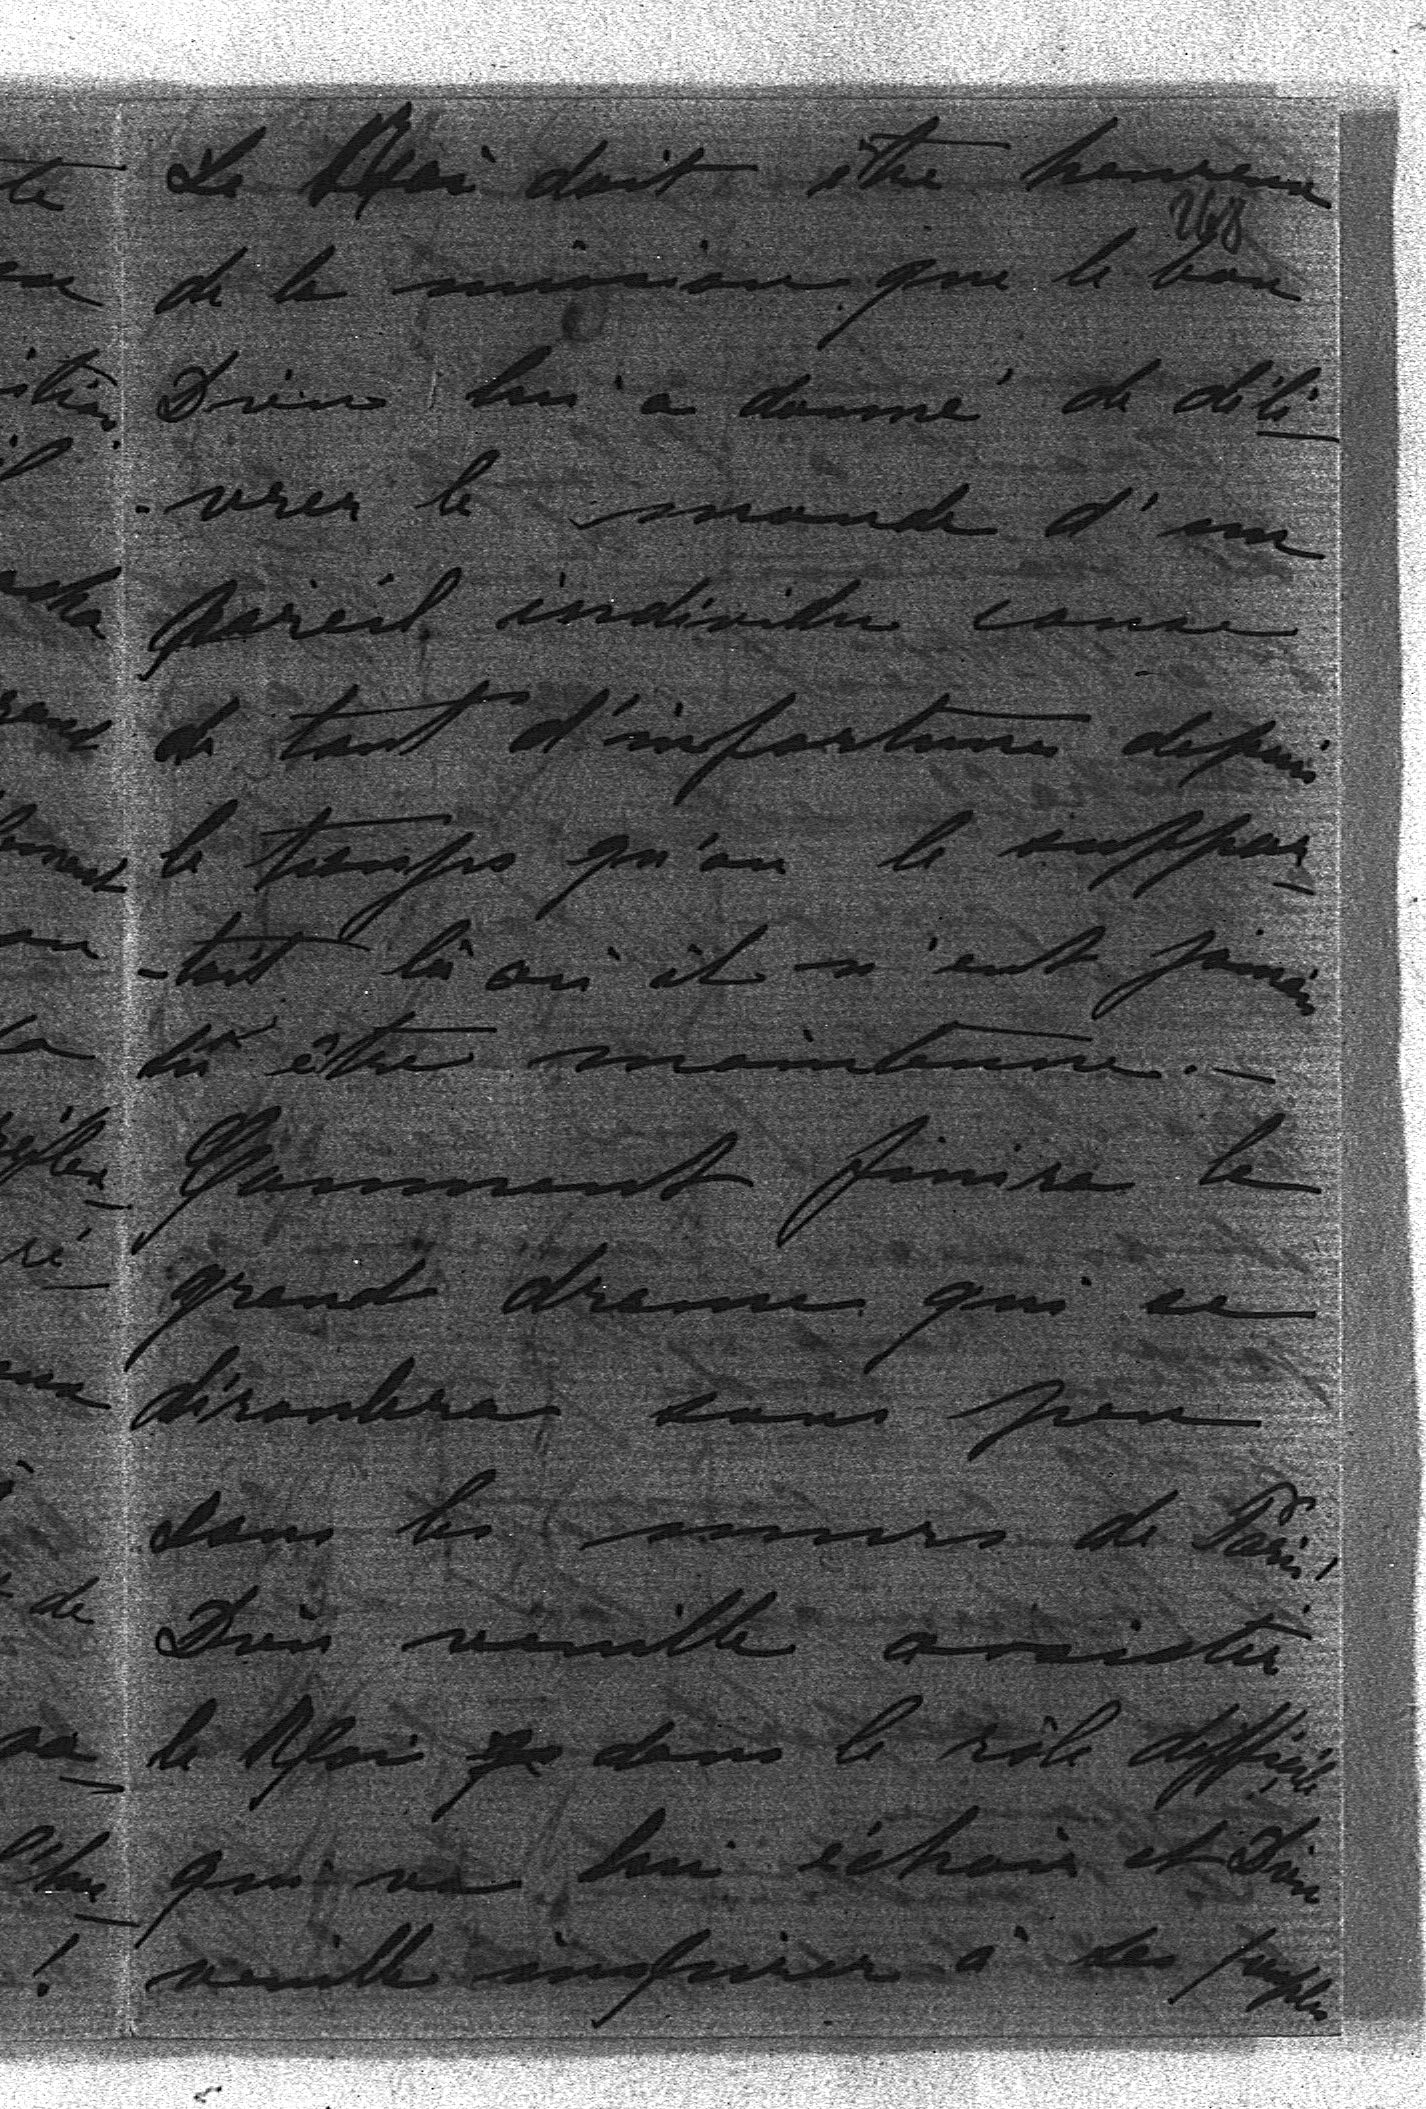 Le Roi doit être heureux
268
de la mission que le bon
Dieu lui a donné de déli-
-vrer le monde d'un
pareil individu cause
de tant d'infortunes depuis
le temps qu'on le suppor-
-tait là où il n'eut jamais
dû être maintenu. —
Comment finira le
grand drame qui se
déroulera sous peu
dans les murs de Paris!
Dieu veuille assister
le Roi dans le rôle difficile
qui va lui échoir et Dieu
veuille inspirer à ses peuples